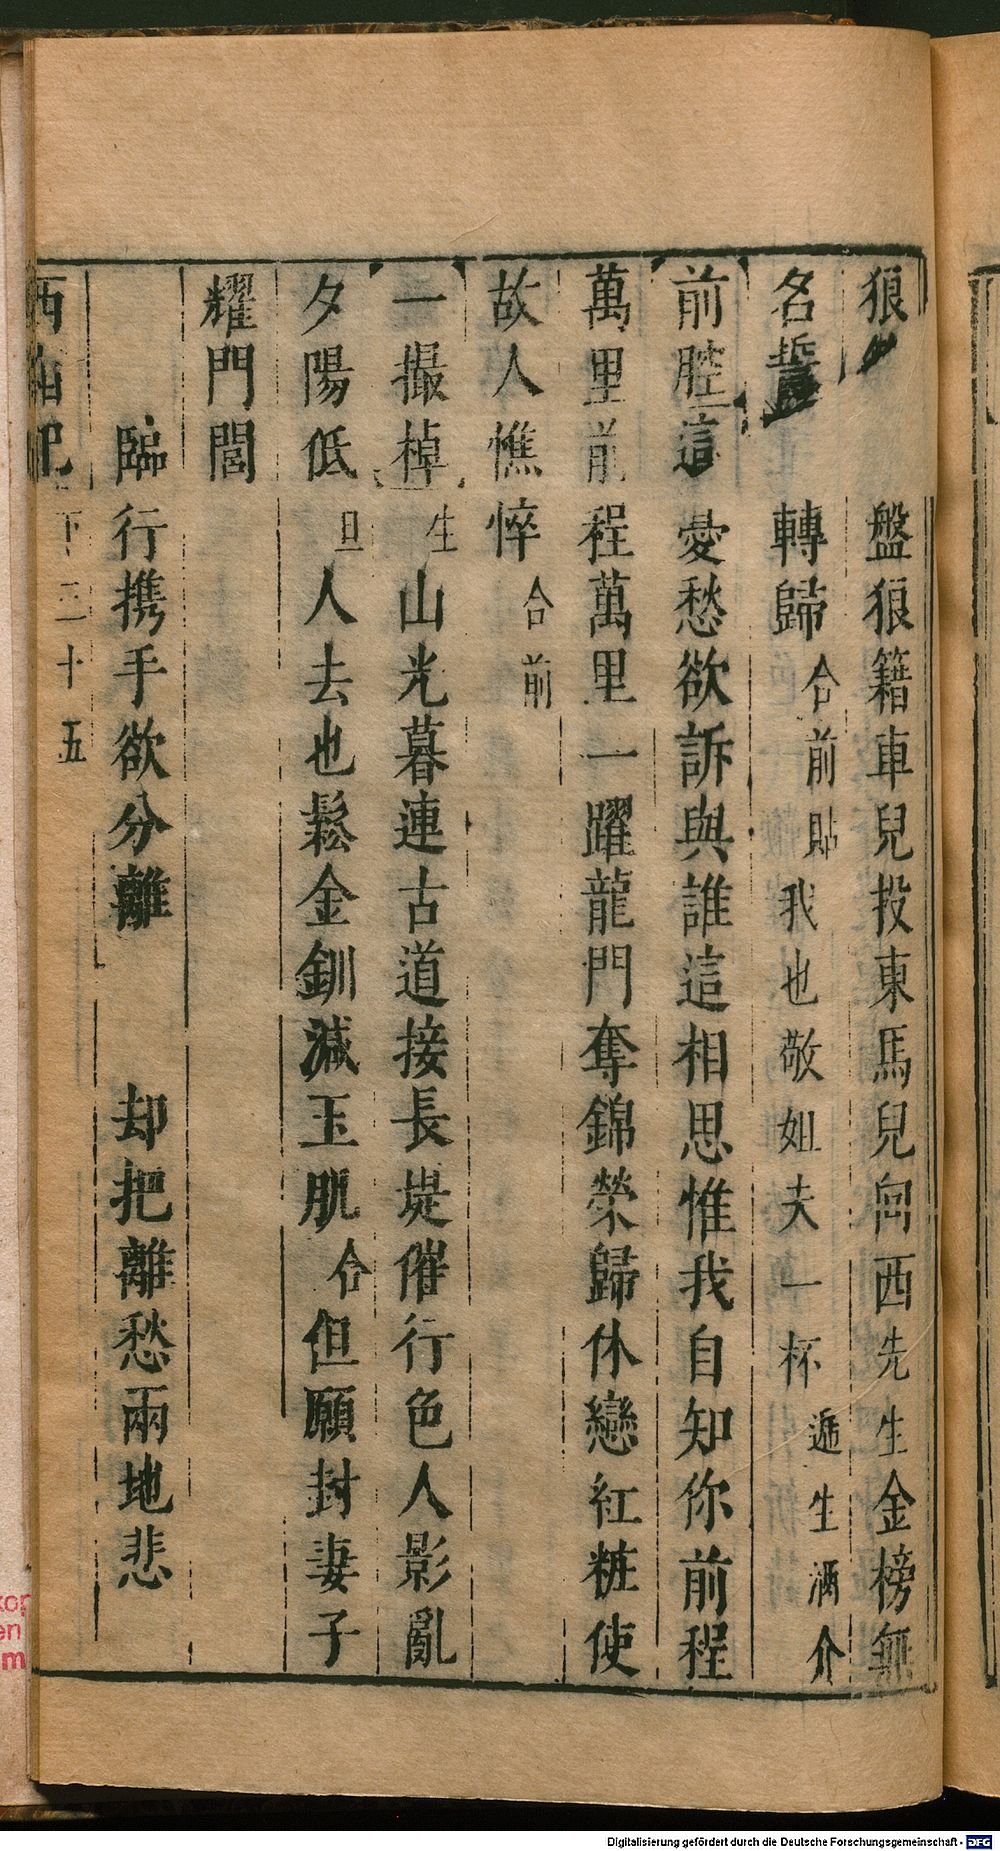 狼 盤狼籍車兒投東馬兒向西先生金榜無
名誓 轉歸合前貼我也敬姐夫一杯遞生酒介
前腔這憂愁欲訴與誰這相思惟我自知你前程
萬里前程萬里一躍龍門奪錦榮歸休戀紅粧使
故人憔悴合前
一撮棹生山光暮連古道接長堤催行色人影亂
夕陽低旦人去也鬆金釧減玉肌合但願封妻子
耀門閭
臨行携手欲分離 却把離愁兩地悲
西 記 下 三十五
kor
en
m
Digitalisierung gefördert durch die Deutsche Forschungsgemeinschaft - DFG